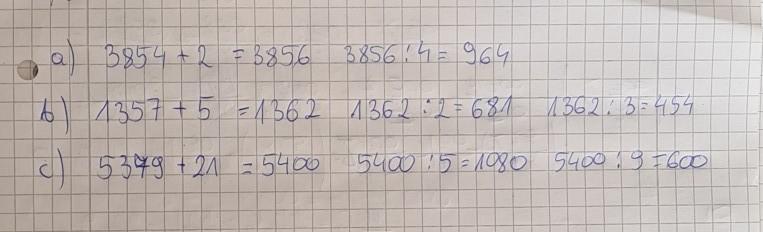 a) 3854 + 2 = 3856 3856 : 4 = 964
b) 1357 + 5 = 1362 1362 : 2 = 681 1362 : 3 = 454
c) 5379 + 21 = 5400 5400 : 5 = 1080 5400 : 9 = 600